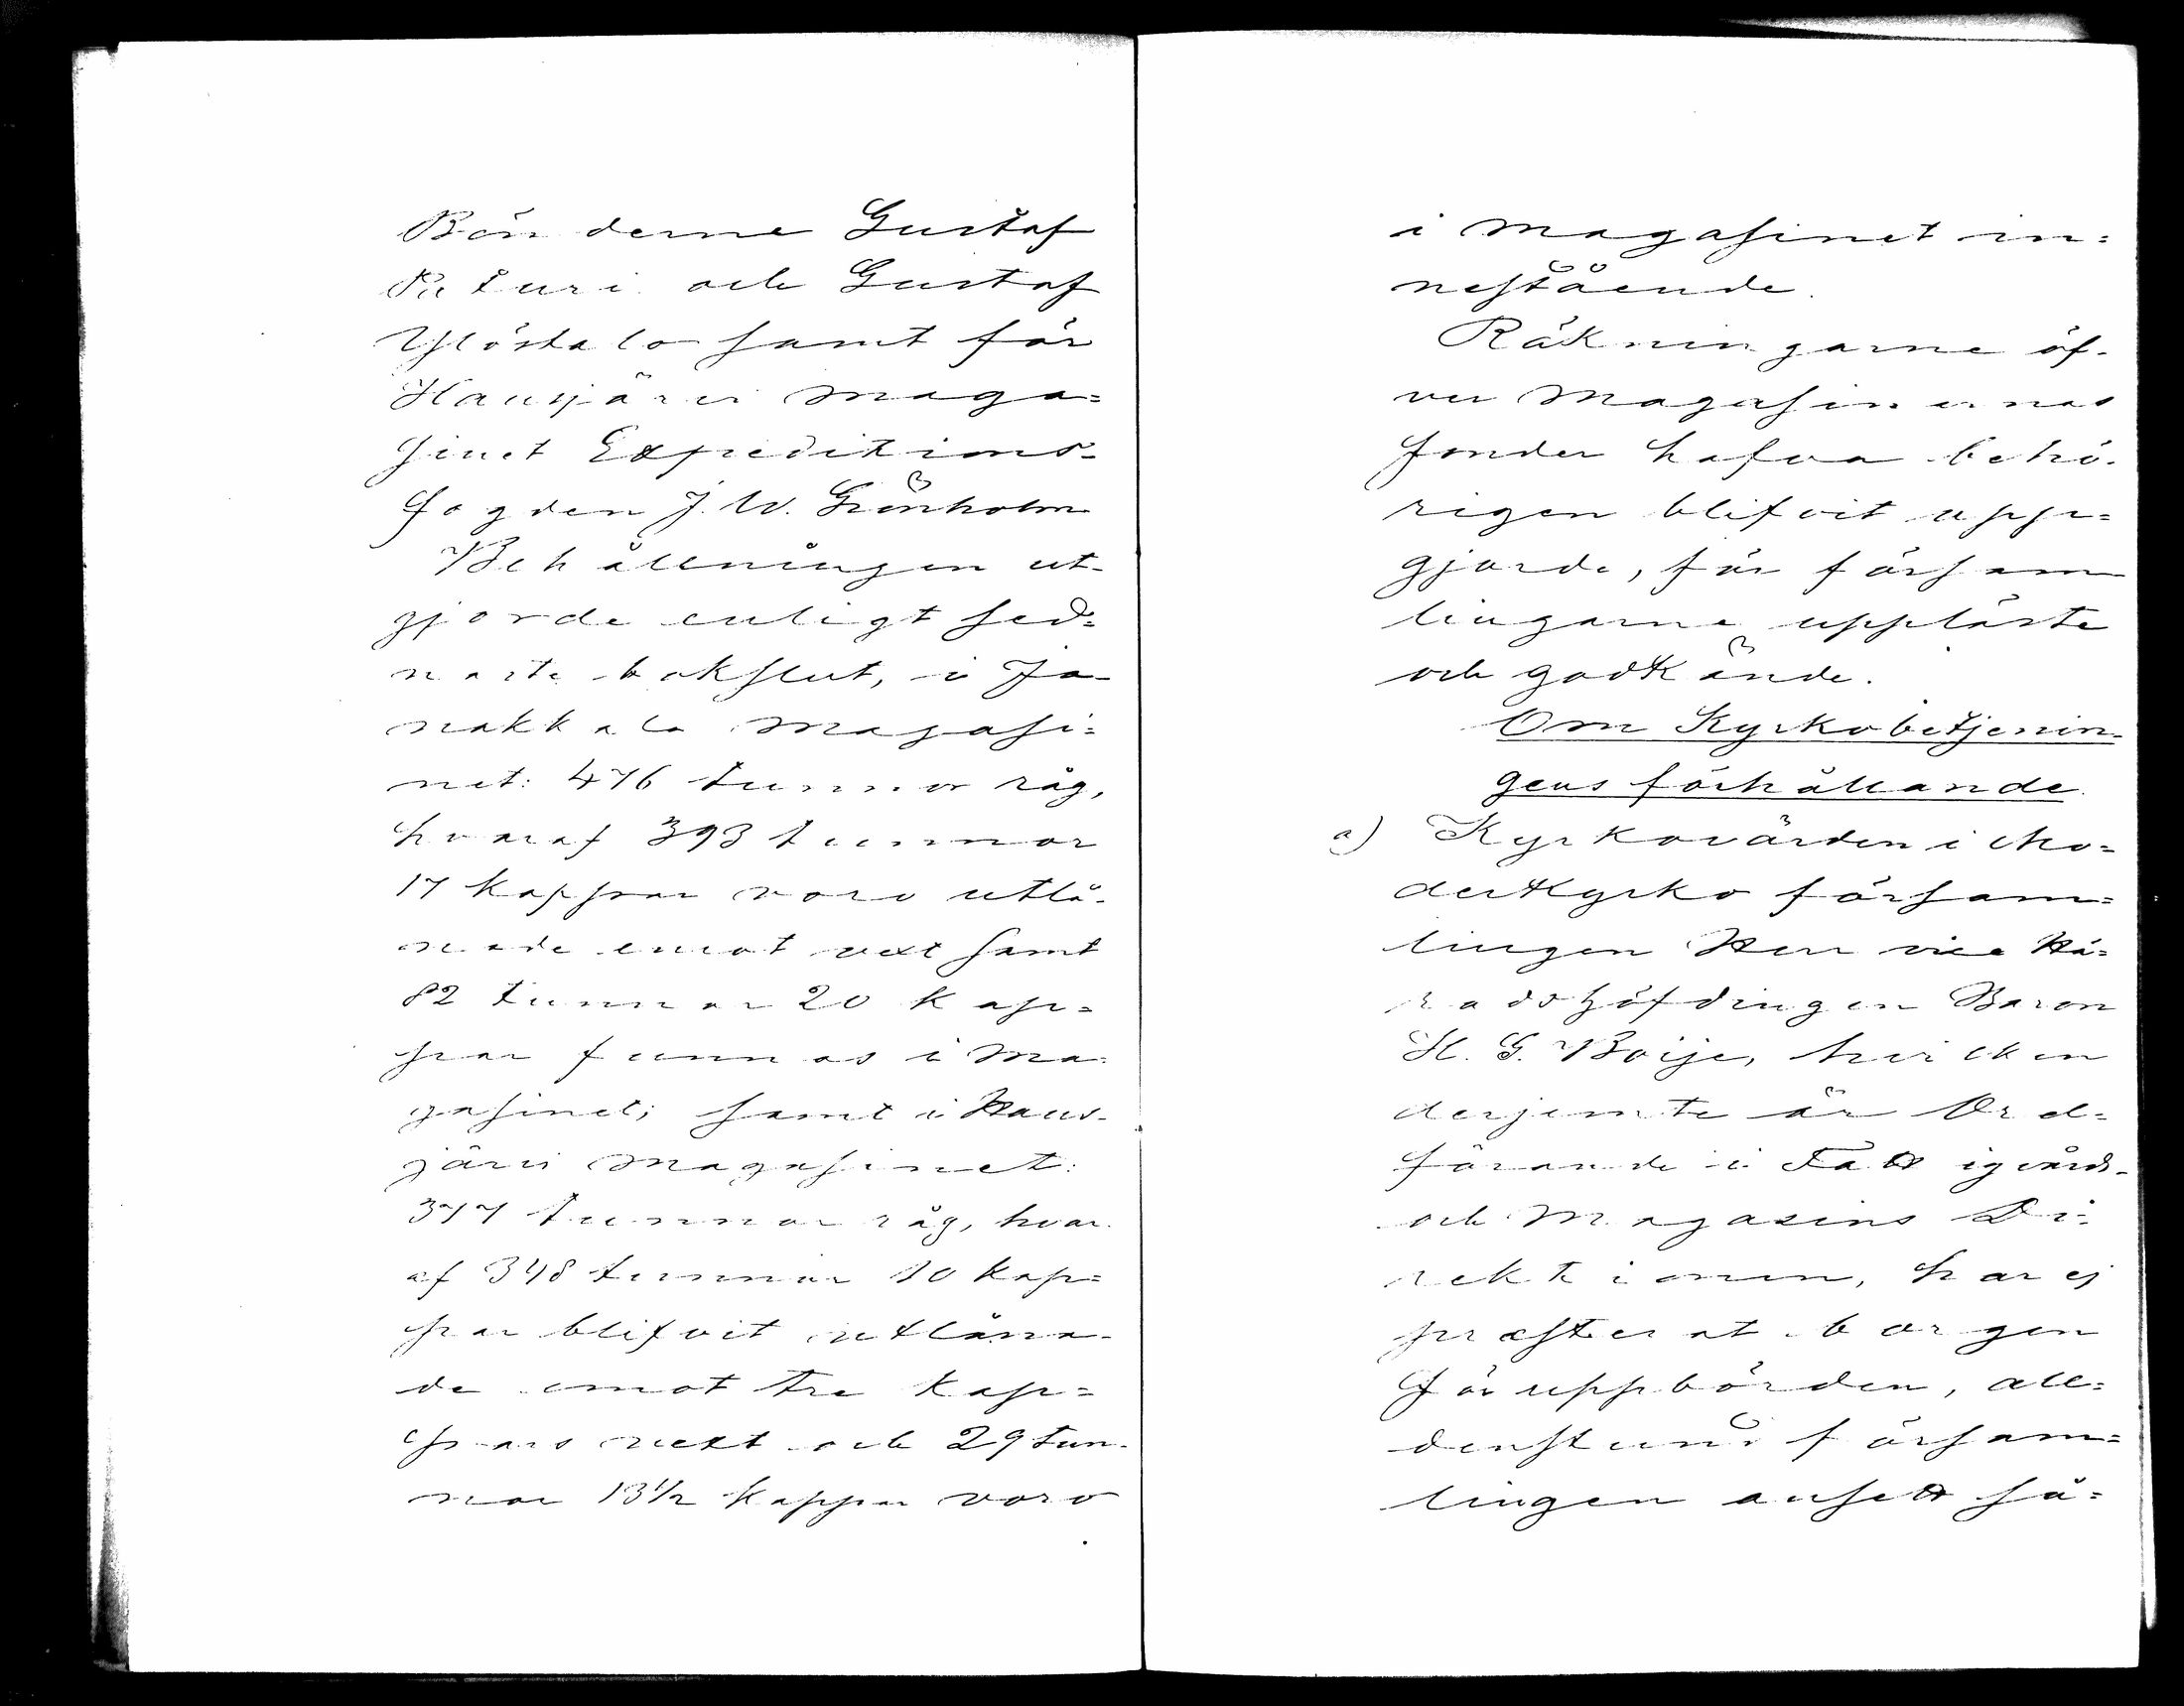 Bönderne Gustaf
och Gustaf
Ylöstalo samt för
Hausjärvi maga=
sinet Expeditions=
fogden J. W. Grönholm
Behållningen ut-
gjorde enligt sed=
naste bokslut, i Ja-
nakkala magasi=
net: 476 tunnor råg,
hvaraf 393 tunnor
17 kappar voro utlå-
nade emot vext samt
82 tunnor 20 kap=
par funnos i Ma-
gasinet; samt i Haus-
järvi Magasinet:
377 tunnor råg, hvar-
af 348 tunnor 10 kap=
par blifvit utlåna-
de emot tre kap=
pars vext och 29 tun-
nor 13 1/2 kappar voro
i magasinet in=
nestående.
Räkningarne öf-
ver Magasinernas
fonder hafva behö-
rigen blifvit upp=
gjorde, för försam
lingarne uppläste
och godkände.
Om Kyrkobetjenin-
gens förhållande.
a) Kyrkovärden i Mo=
derkyrko försam=
lingen Herr vice Hä=
radshöfdingen Baron
H. G. Boije, hvilken
derjemte är Ord=
förande i Fattigvårds-
och Magasins Di=
rektionen, har ej
præsterat borgen
för uppbörden, all=
denstund försam=
lingen ansett så=